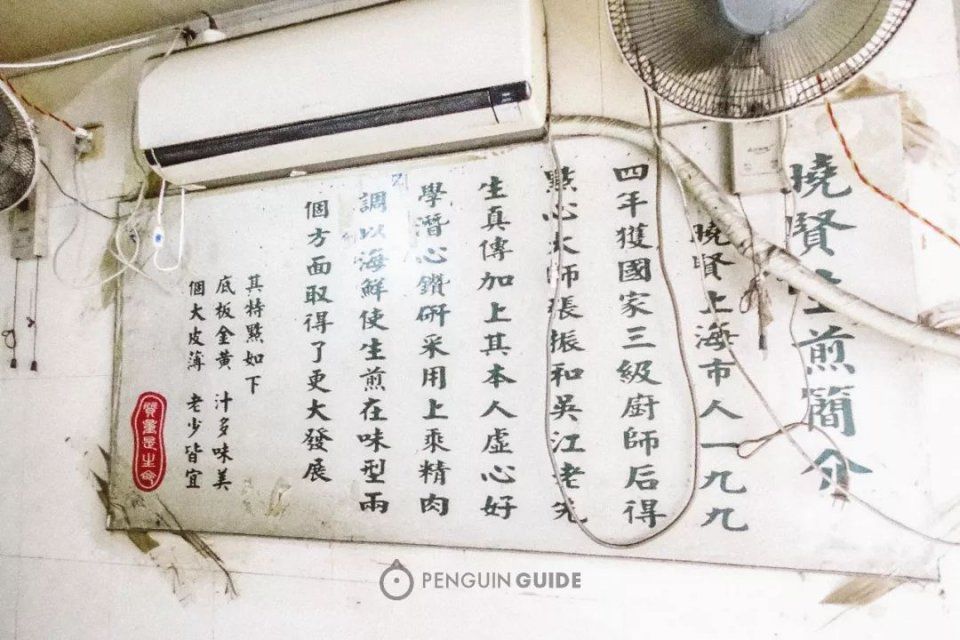 曉賢生煎簡介
曉賢上海市人一九九
四年獲國家三級廚師后得
點心大師張振和吳江老先
生真傳加上其本人虛心好
學潛心鑽研采用上乘精肉
調以海鮮使生煎在味型兩
個方面取得了更大發展
其特點如下
底板金黃 汁多味美
個大皮薄 老少皆宜
質量是生命
PENGUIN GUIDE